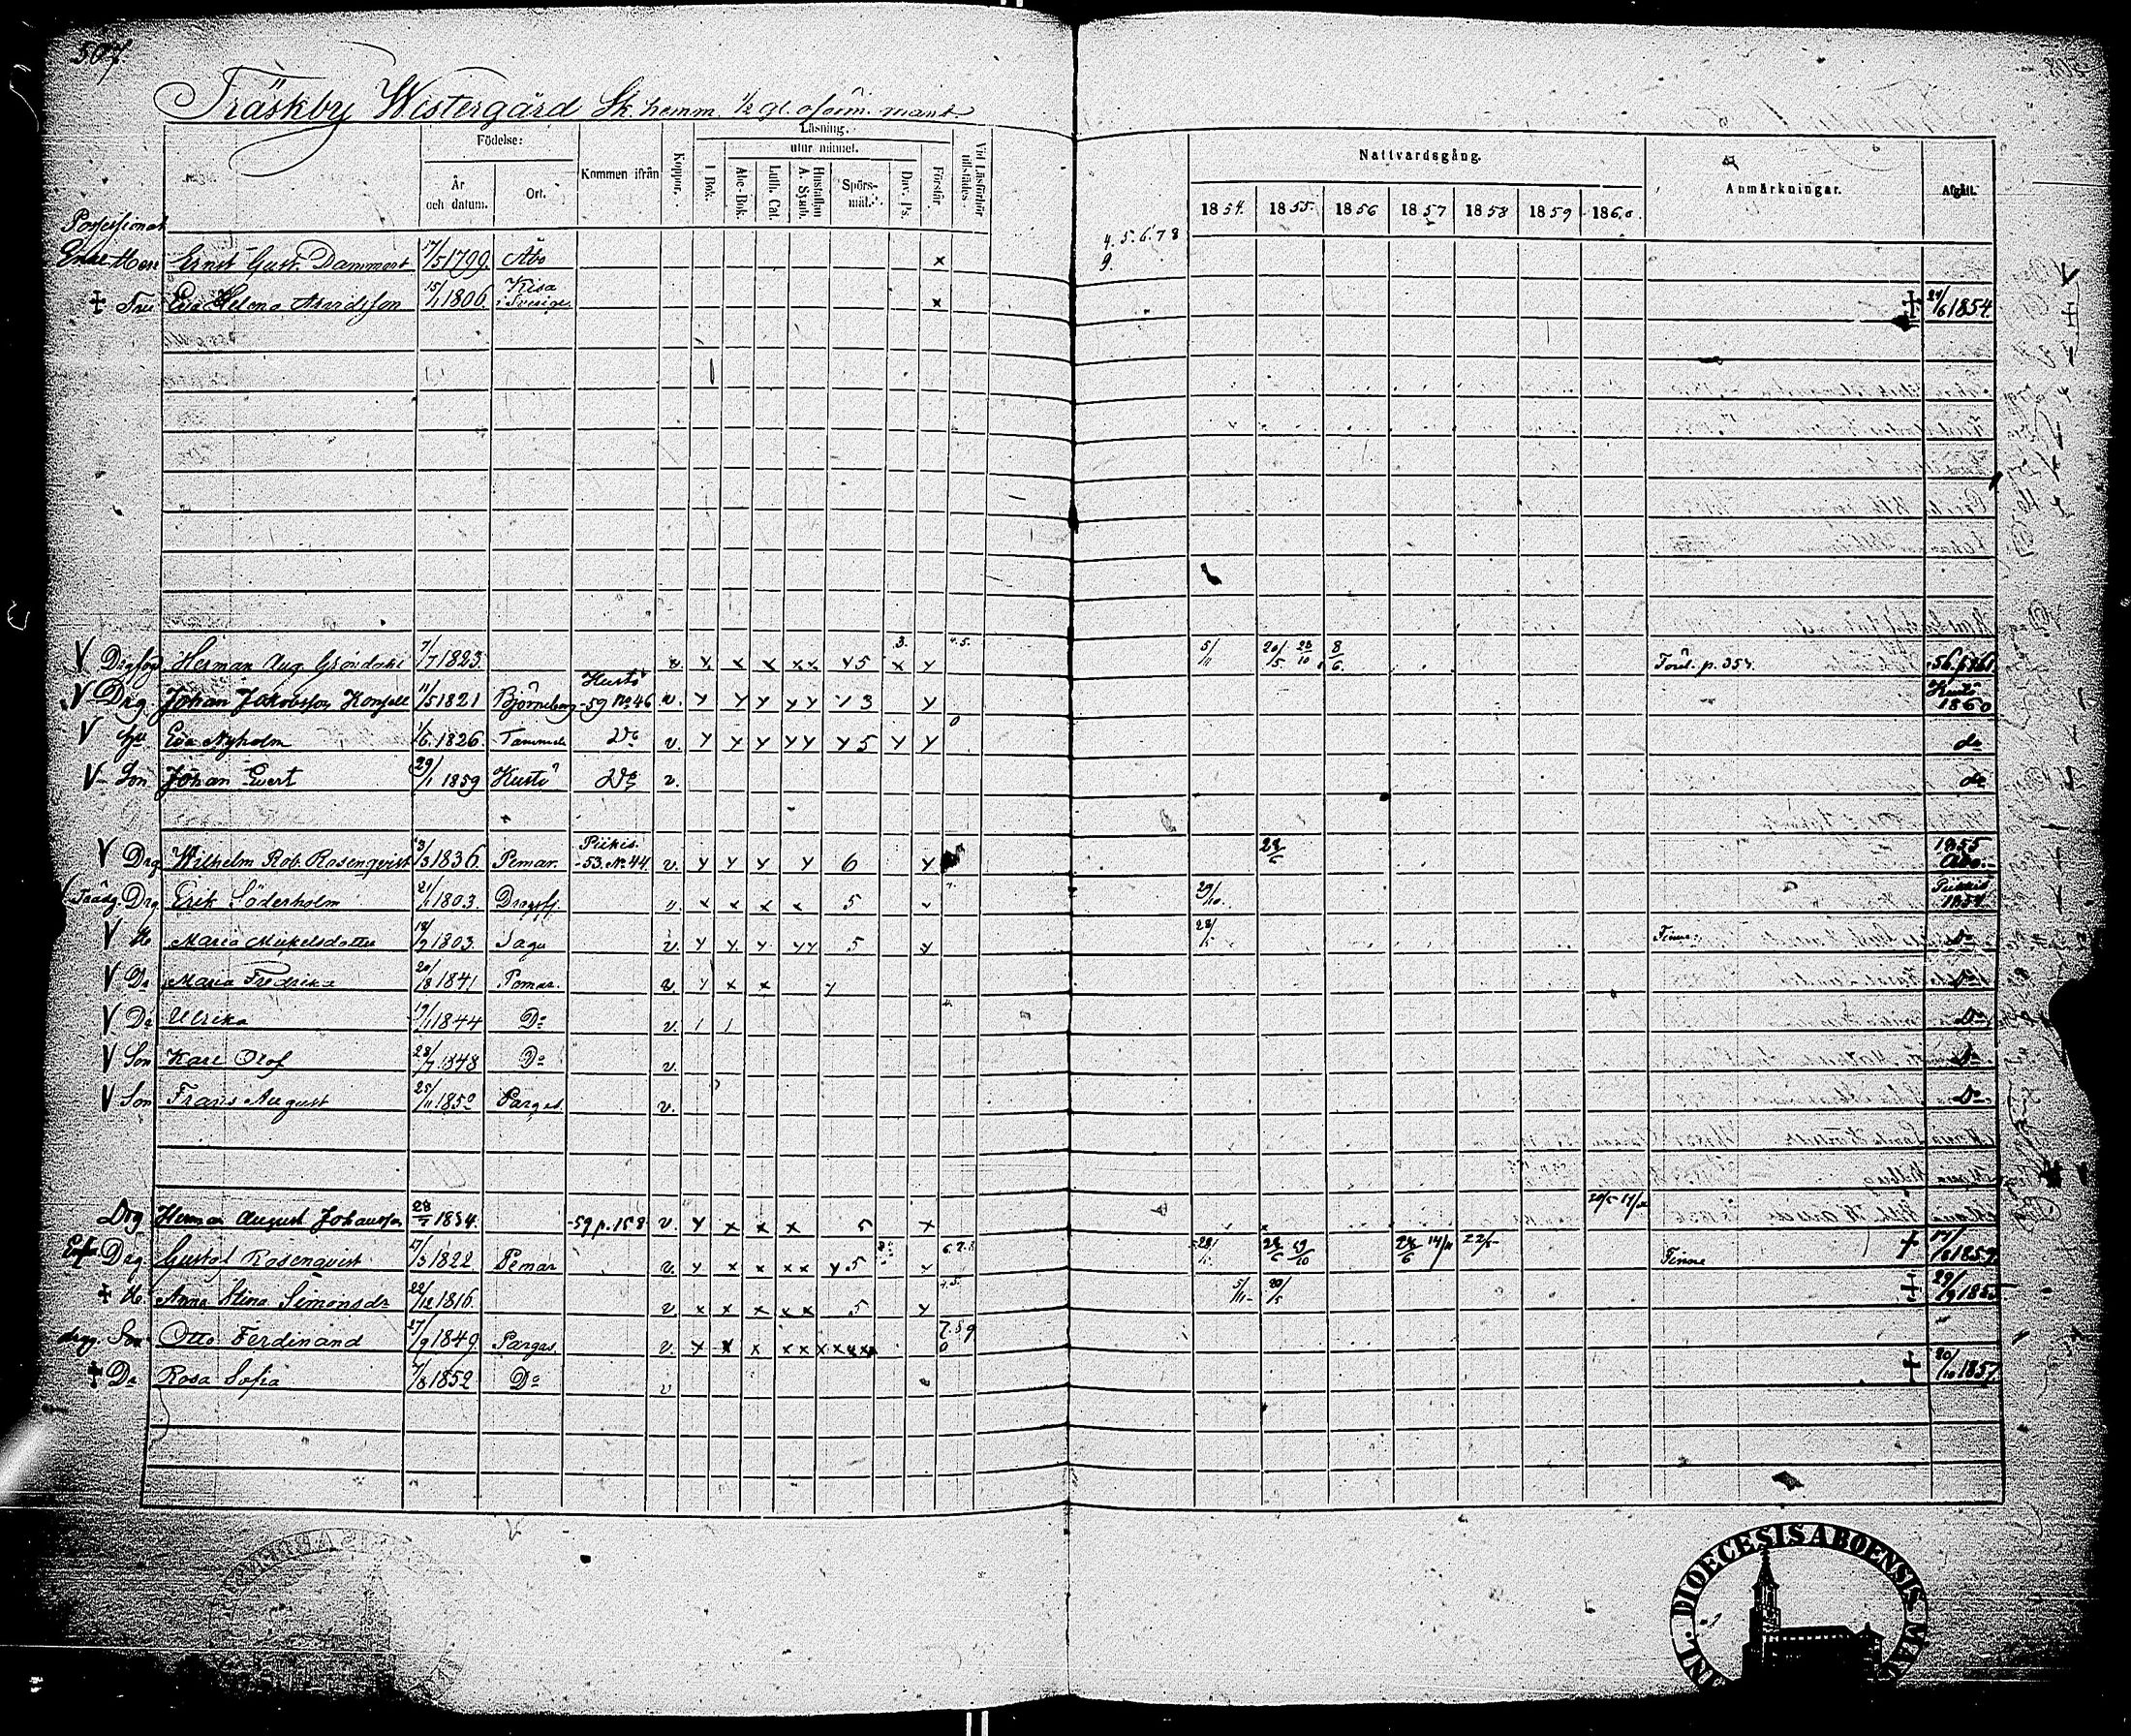 507.
Träskby Westergård Sk. hemm. 1/2 gl. oförm. mant.
Födelse: Läsning. Nattvardsgång.
utur minnet.
År och datum. Ort. Kommen ifrån Koppor. I Bok. Abc-Bok. Luth. Cat. Hustaflan A. Symb. Spörsmål. Dav. Ps. Förstår Vid Läsförhör tillstädes. 1854. 1855. 1856 1857 1858 1859 1860. Anmärkningar. Afgått.
Possessionat
Enkl. Herr Ernst Gust. Dammert 17/5 1799. Åbo x 4. 5. 6. 7 8
9.
+ Fru Eva Helena Arvidsson 15/1 1806. Kisa i Sverige x + 24/6 1854.
V Drgfogd Herman Aug. Gröndahl 7/7 1823. v. x x x xx x5 3. x x 4.5. 5/11 20/5 28/10 8/6. Förd. p. 357. 56. p. 361
V Drg. Johan Jakobsson 11/5 1821 Björneborg Kustö -59 No 46 v. x x x xx x 3 x Kustö 1860
V Hu Eva Nyholm 1/6. 1826. Tammela Do v. x x x xx x5 x x 0 do
V Son Johan Evert 29/1 1859 Kustö Do v. do
V Drg Wilhelm Rob. Rosenqvist 13/3 1836. Pemar. Piikis -53. No 44. v. x x x x 6 x 28/6 1855 Åbo.
Trädg. Drg Erik Söderholm 21/1 1803. v x x x x 5 x 29/10. Piikkis 1854.
V H. Maria Mickelsdotter 18/9 1803. Sagu v. x x x xx 5 x 28/5 Do
V Dr Maria Fredrika 20/8 1841 Pemar. v. x x x x Do
V Dr Ulrika 19/1 1844 Do v. / / Do
V Son Karl Olof 28/7 1848 Do v. Do
V Son Frans August 25/11 1850 Pargas. v. Do
Drg Herman August Johansson 28/7 1834. -59 p. 158 v. x x x x 5 x 20/5 14/10
Enkl. Drg Gustaf Rosenqvist 17/3 1822 Pemar v. x x x xx x5 x 6.7.8 28/5 28/6 29/10 28/6 14/11 22/5 + 17/8 1859.
+ H. Anna Stina Simonsdr 22/12 1816. v x x x xx 5 x 4.5. 5/11 20/5 + 29/9 1855
drg. Son Otto Ferdinand 27/9 1849. Pargas. v. x x x xx xxxxx 7.8 9 0
+ Dr Rosa Sofia 7/8 1852 Do v + 20/10 1857.
DIOECESIS ABOENSIS